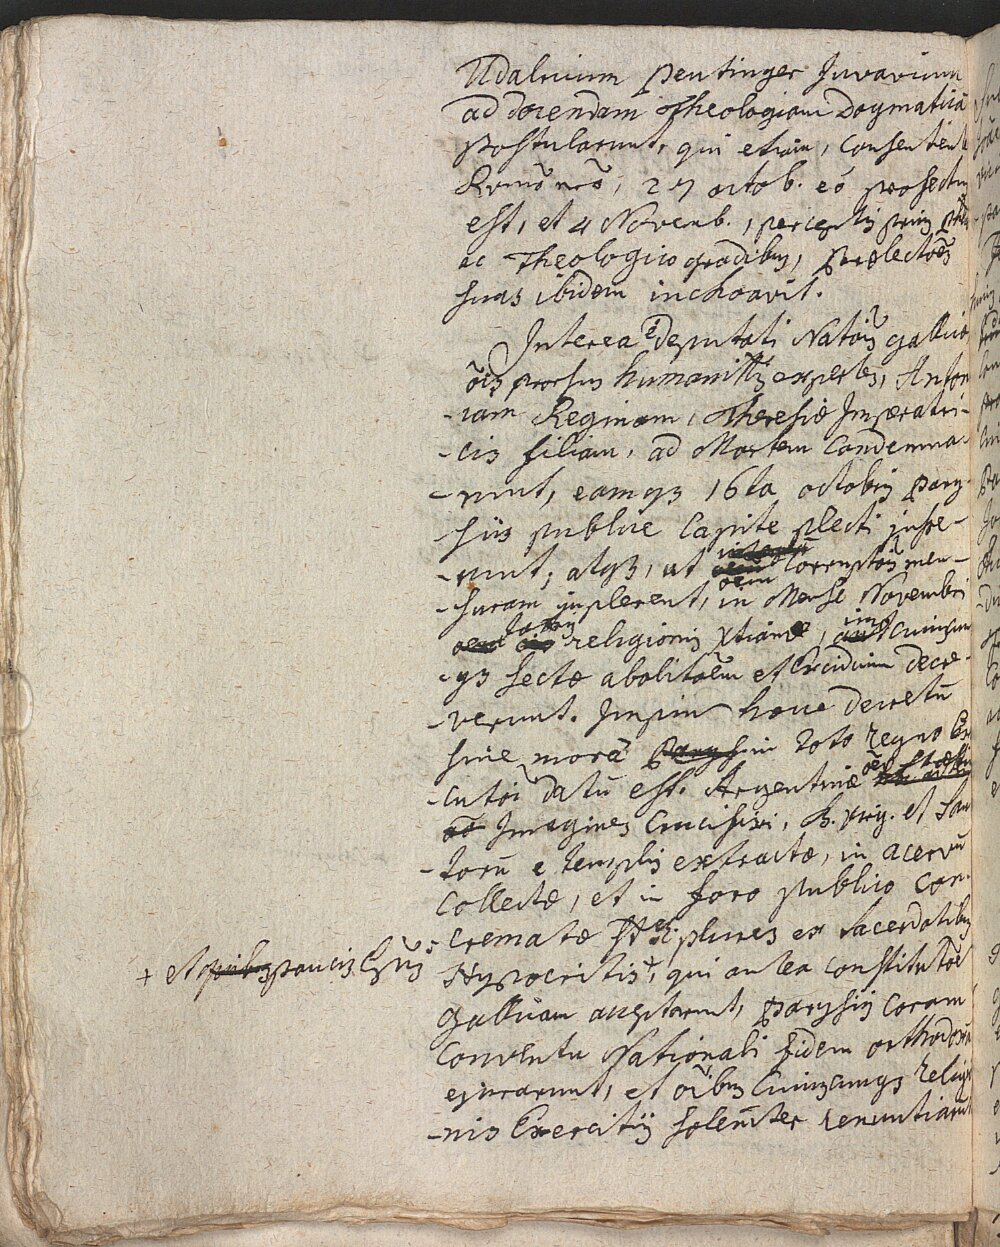 Udalricum Peutinger Juvavium
ad docendam Theologiam Dogmaticã
postularunt, qui etiam, consentiente
27 octob. eó profectus
est, et 4 Novemb., perceptis prius
ac Theologico gradibus, prælectões
suas ibidem inchoavit.
Interea Deputati Natõis gallicæ
õis prorsus humanittis expertes, Anton
-iam Reginam, Theresiæ Imperatri-
-cis filiam, ad Mortem Condemna-
-runt, eamqз 16ta octobris Pary-
-siis publice Capite plecti jusse-
-runt; atqз, ut õem corruptõis men-
-suram implerent, in Mense Novembri
totius religionis Xtianæ, imo cuiuscun
-qз sectæ abolitõem et excidium decre-
-verunt. Impium hocce decretũ
sine morâ in toto regno Exe
-cutõi datũ est. Argentinæ
Imagines Crucifixi, B. Virg. et Sanc
-torũ e templis extractæ, in acervũ
collectæ, et in foro publico con-
-crematæ st. et plures ex Sacerdotibus
+ et paucis
Hypocritis, qui antea constitutõem
Gallicam acceptarunt, Parysiis coram
Conventu Nationali fidem orthodoxã
ejurarunt, et oĩbus cuiuscumqз religio
-nis Exercitiis solem̃ter renuntiarunt